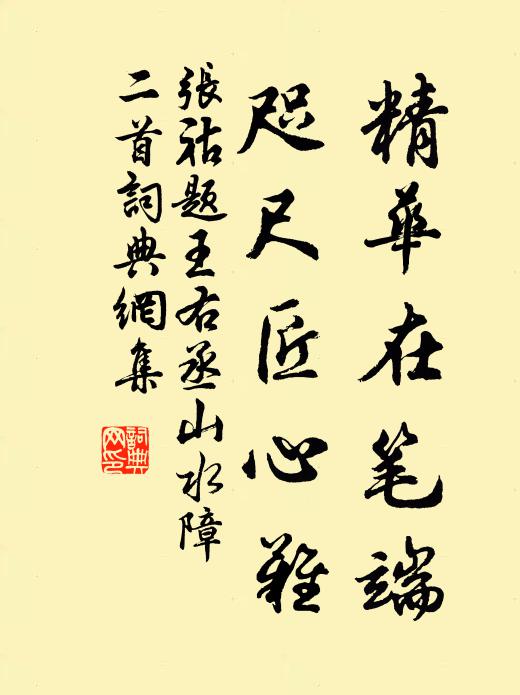 精華在笔端
咫尺匠心難
張祜題王右丞山水障
二首詞典網集
詞典
网印